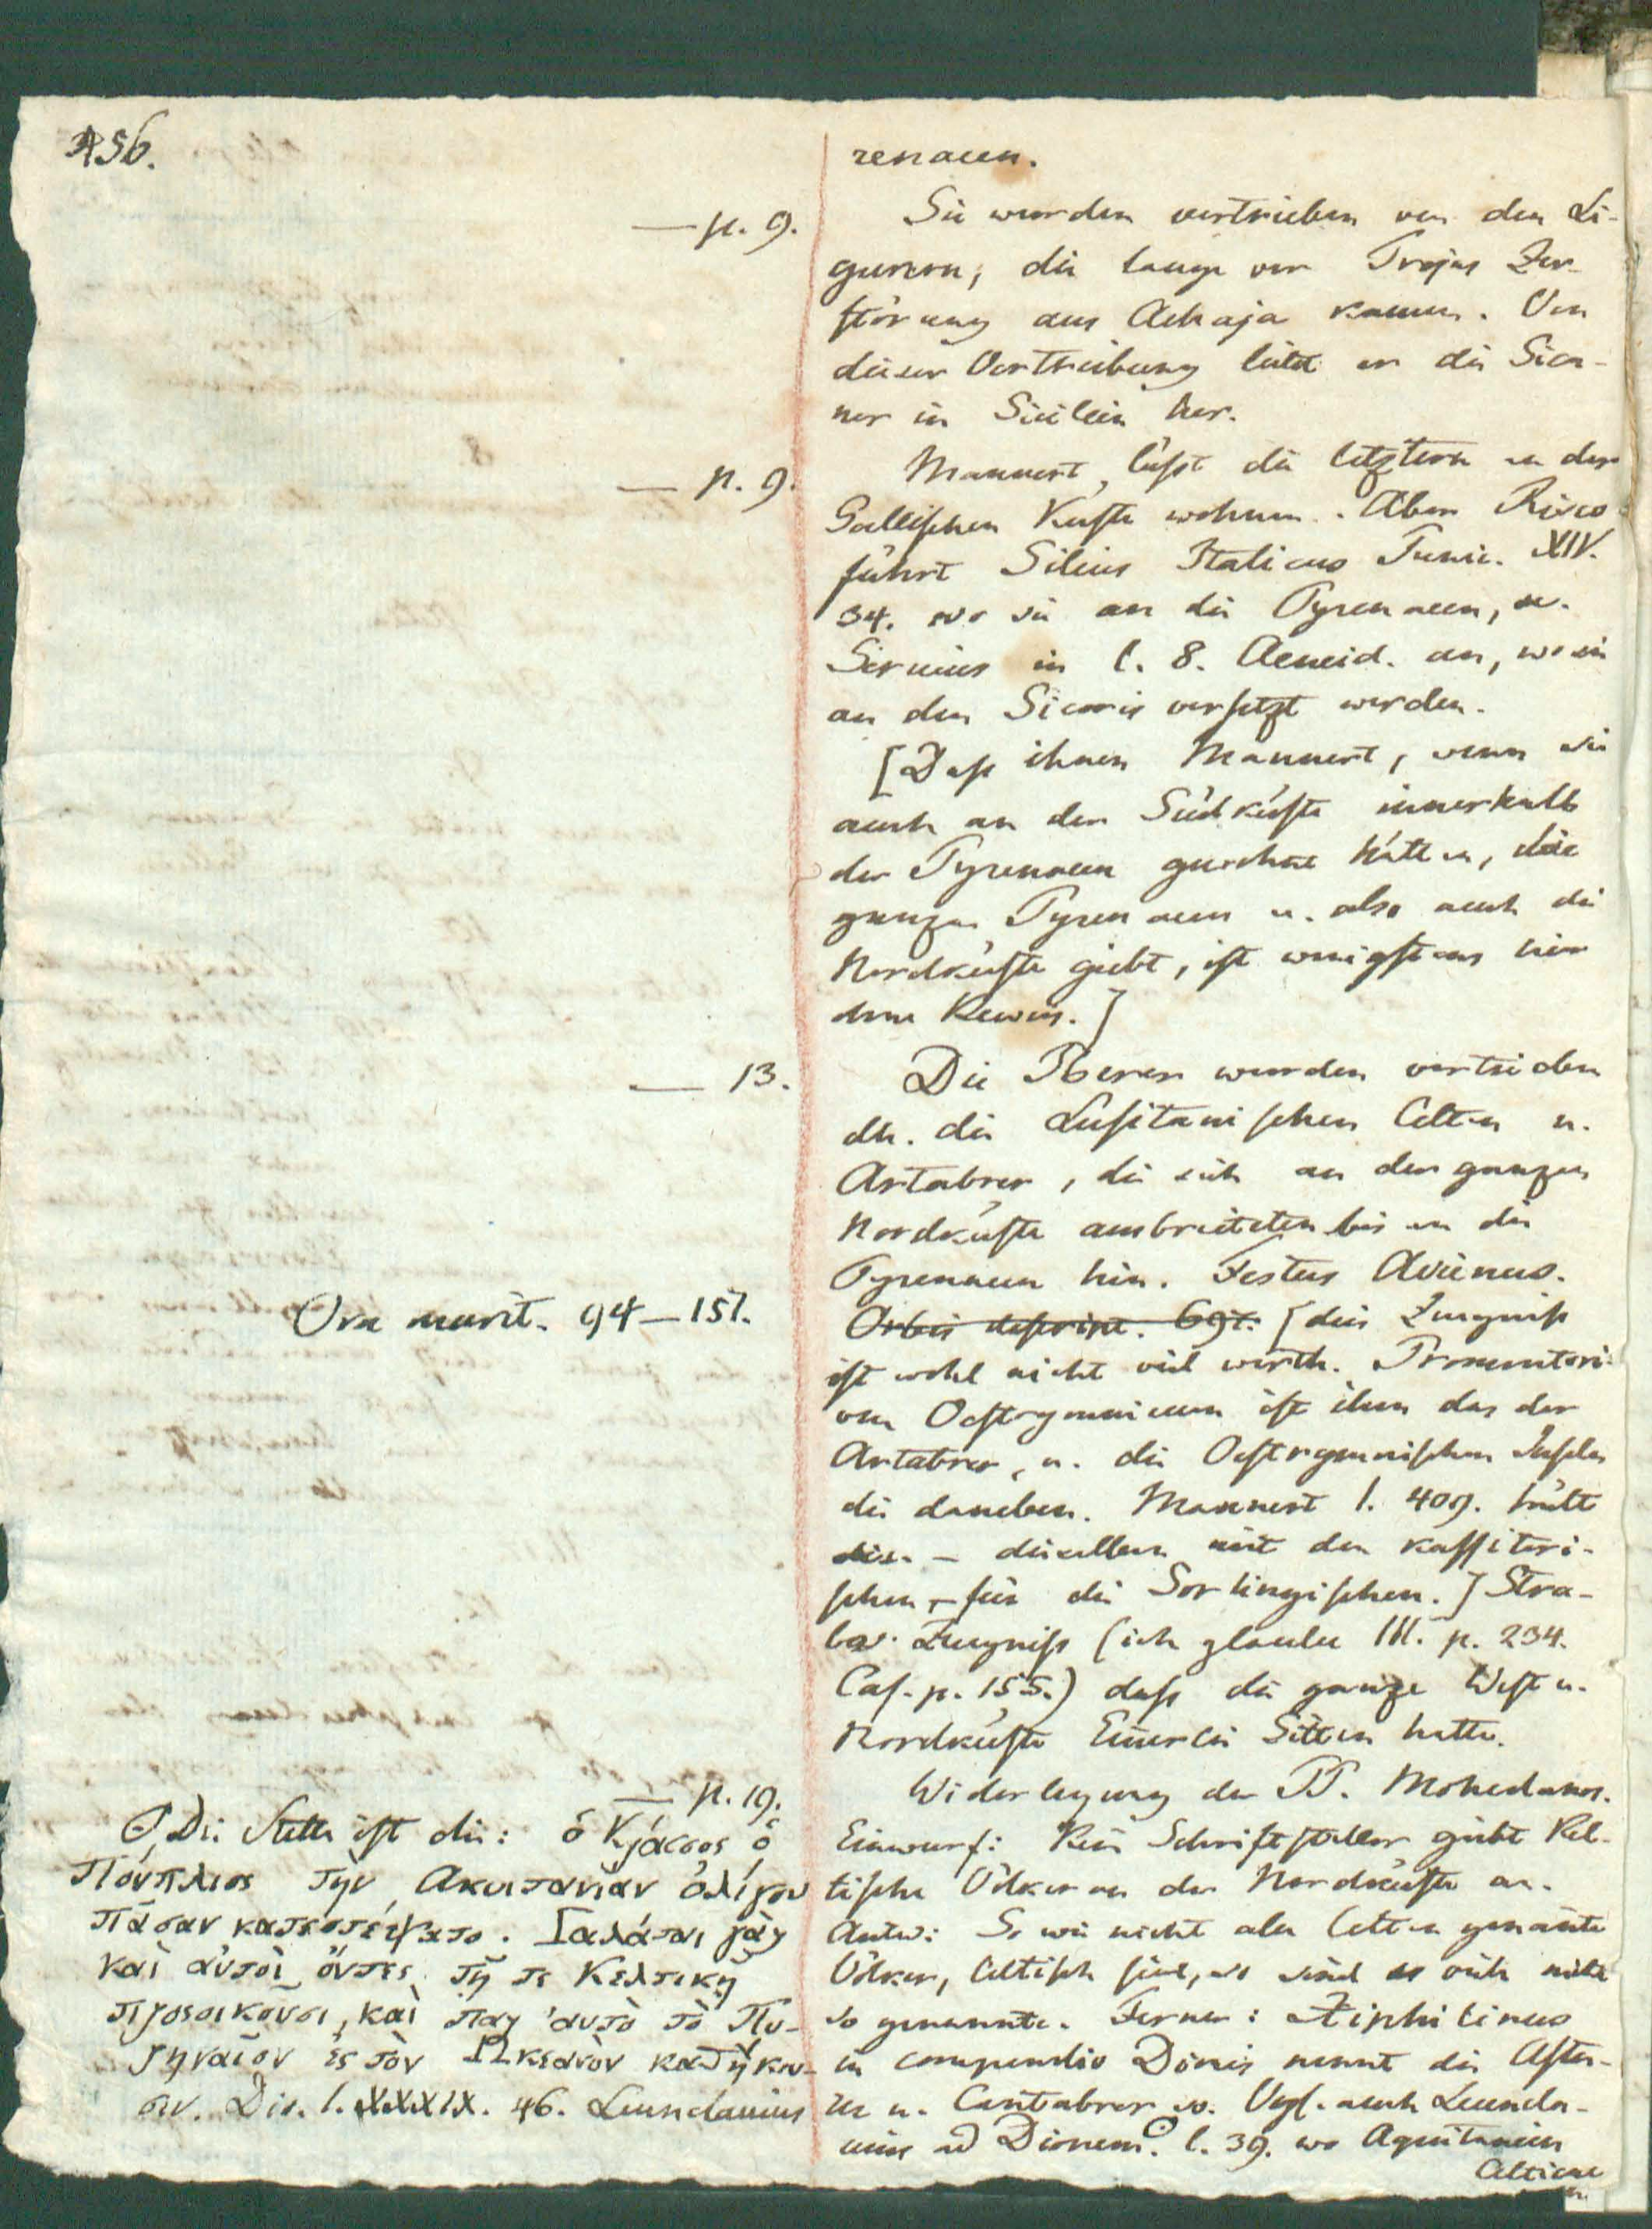 456.
renaeen.
— p. 9.
Sie wurden vertrieben von den Li-
gurern, die lange vor Trojas Zer-
störung aus Achaja kamen. Von
dieser Vertreibung leitet er die Sica-
ner in Sicilien her.
— p. 9.
Mannert läßt die letztern an der
Gallischen Küste wohnen. Aber Risco
führt Silius Italicus Punic. XIV.
34. wo sie an die Pyrenaeen, u.
Servius in l. 8. Aeneid. an, wo sie
an den Sicoris versetzt werden.
[Daß ihnen Mannert, wenn sie
auch an der Südküste innerhalb
der Pyrenaeen gewohnt hätten, die
ganzen Pyrenaeen u. also auch die
Nordküste giebt, ist wenigstens hier
ohne Beweis.]
— 13.
Die Iberer wurden vertrieben
dh. die Lusitanischen Celten u.
Artabrer, die sich an der ganzen
Nordküste ausbreiteten bis an die
Pyrenaeen hin. Festus Avienus.
Ora marit. 94—151.
Orbis descript. 697. [dies Zeugniß
ist wohl nicht viel werth. Promontori-
um Oestrymnicum ist ihm das der
Artabrer, u. die Oestrymnischen Inseln
die daneben. Mannert I. 409. hält
— dieselben mit den kassiteri-
schen – für die Sorlingischen.] Stra-
bos Zeugniß (ich glaube III. p. 234.
Cas. p. 155.) daß die ganze West u.
Nordküste Einerlei Sitten hatte.
— p. 19.
Widerlegung der PP. Mohedanos.
Einwurf: Kein Schriftsteller giebt Kel-
tische Völker an der Nordküste an.
Antw: So wie nicht alle Celten genannte
Völker, Celtisch sind, so sind es auch nicht
so genannte. Ferner: Xiphilinus
in compendio Dionis nennt die Astu-
rer u. Cantabrer so. Vgl. auch Leuncla-
uius ad Dionem. ʘ l. 39. wo Aquitanien
Celticae
ʘ Die Stelle ist die: ὁ Κράσσος ὁ
Πούπλιος τὴν Ακυιτανίαν ὀλίγου
πᾶσαν κατεστρέψατο. Γαλάται γὰρ
καὶ αὐτοὶ ὄντες τῇ τε Κελτικῇ
προσοικοῦσι, καὶ παρ' αυτὸ τὸ Πυ-
ρηναῖον ἐς τὸν Ωκεανὸν καθήκου-
σιν. Dio. l. XXXIX. 46. Leunclauius